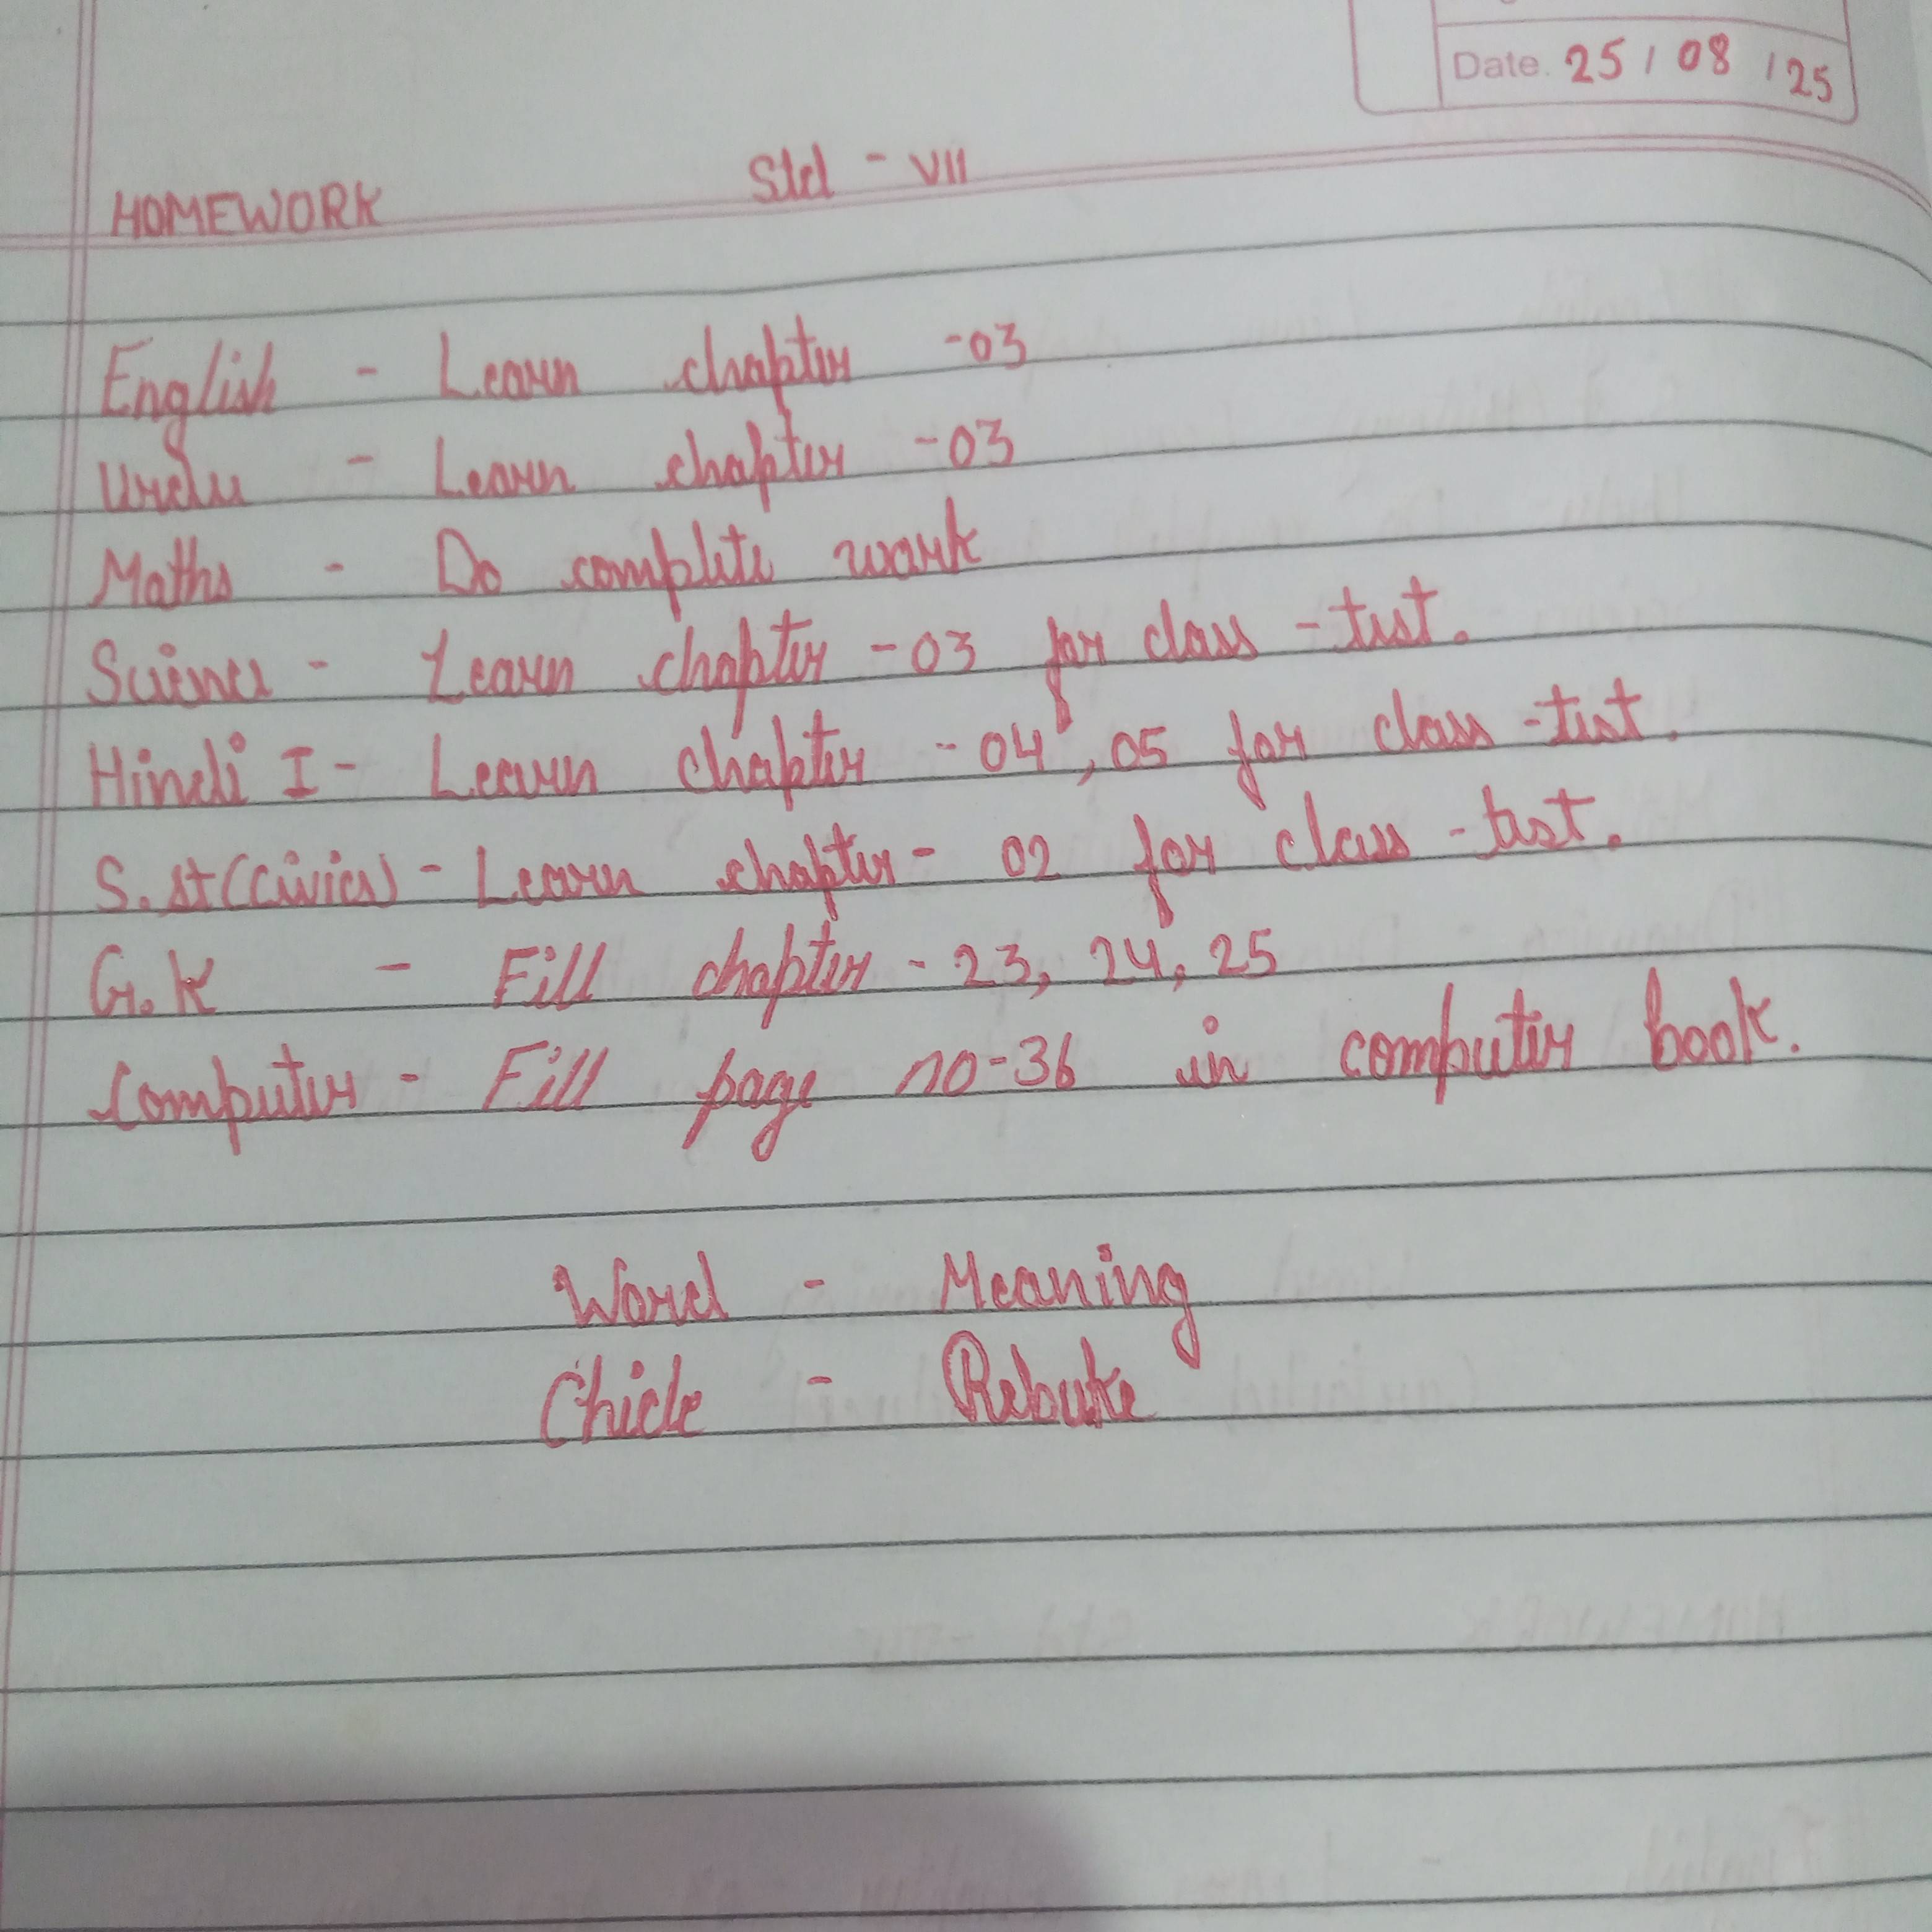 Date. 25 / 08 / 25
HOMEWORK Std - VII
English - Learn chapter -03
Urdu - Learn chapter -03
Maths - Do complete work
Science - Learn chapter -03 for class -test.
Hindi I - Learn chapter -04, 05 for class -test.
S.st (Civics) - Learn chapter - 02 for class -test.
G.K - Fill chapter - 23, 24, 25
Computer - Fill page no-36 in computer book.
Word - Meaning
Chide - Rebuke